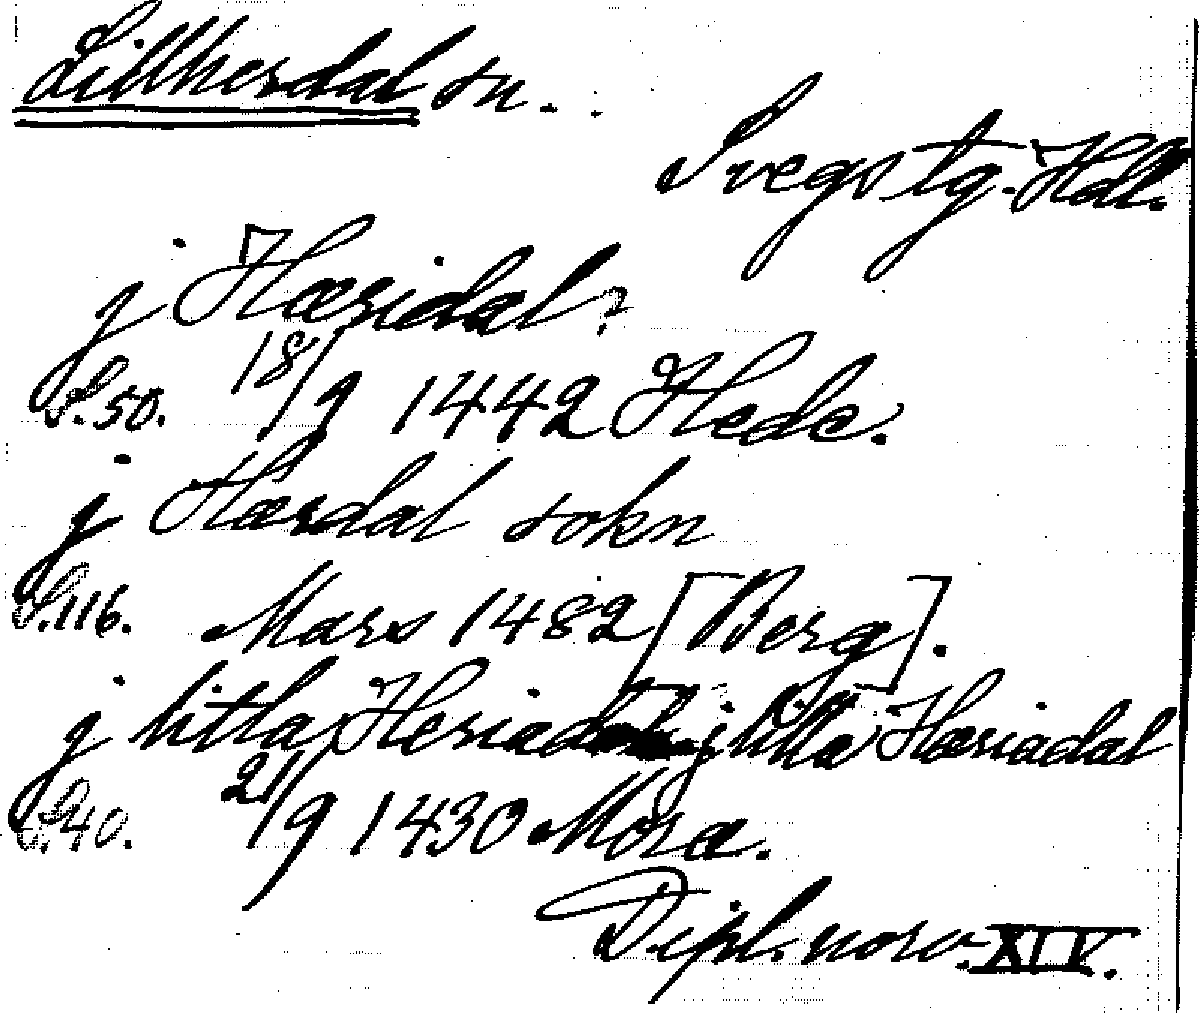 Lillherdal sn.
Svegs tg. Hdl.
j Hæridal?
S. 50. 18/9 1442 Hede.
j Hærdal sokn
S. 116. Mars 1482 [Berg].
j litla Heriadal j litla Hæriadal
S. 40. 21/9 1430 Mora.
Dipl. norv. XIV.